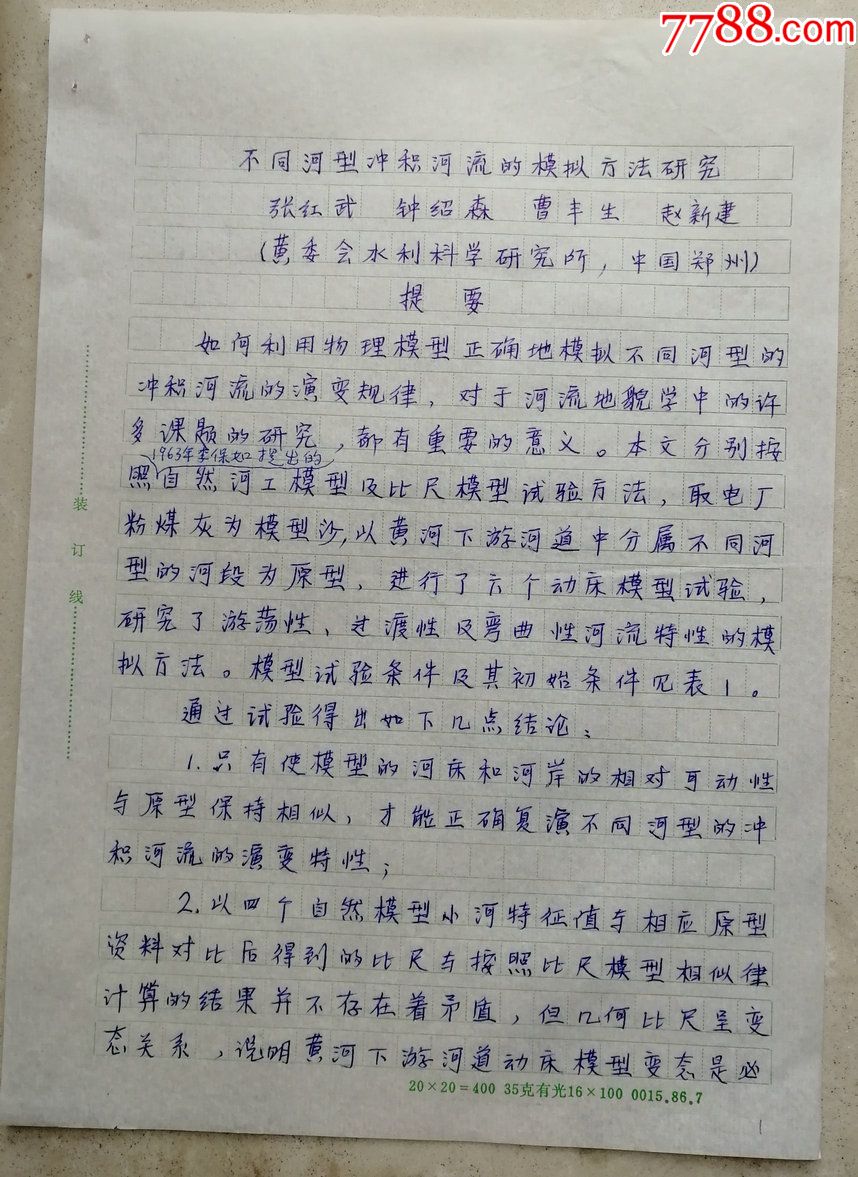 7788.com
不同河型冲积河流的模拟方法研究
张红武 钟绍森 曹丰生 赵新建
(黄委会水利科学研究所，中国郑州)
提 要
如何利用物理模型正确地模拟不同河型的
冲积河流的演变规律，对于河流地貌学中的许
多课题的研究，都有重要的意义。本文分别按
1963年李保如提出的
照自然河工模型及比尺模型试验方法，取电厂
粉煤灰为模型沙，以黄河下游河道中分属不同河
型的河段为原型，进行了六个动床模型试验，
研究了游荡性、过渡性及弯曲性河流特性的模
拟方法。模型试验条件及其初始条件见表1。
通过试验得出如下几点结论：
1.只有使模型的河床和河岸的相对可动性
与原型保持相似，才能正确复演不同河型的冲
积河流的演变特性；
2.以四个自然模型小河特征值与相应原型
资料对比后得到的比尺与按照比尺模型相似律
计算的结果并不存在着矛盾，但几何比尺呈变
态关系，说明黄河下游河道动床模型变态是必
装订线
20×20=400 35克有光16×100 0015.86.7
1